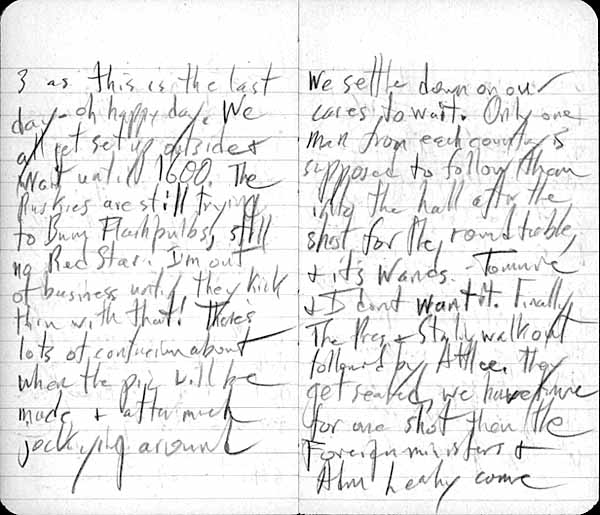 3 as this is the last
day - oh happy day. We
all get set up outside &
wait until 1600. The
Ruskies are still trying
to Bum Flashbulbs, still
no Red Star. I'm out
of business until they kick
thru with that! There's
lots of confusion about
when the pic will be
made & after much
jockying around
We settle down on our
cases to wait. Only one
man from each country is
supposed to follow them
into the hall after the
shot for the, roundtable,
& it's Wands. -
& I dont want it. Finally
The Pres, & Staly walk out
followed by Attlee. They
get seated, we have time
for one shot then the
Foreign ministers &
Adm Leahy come